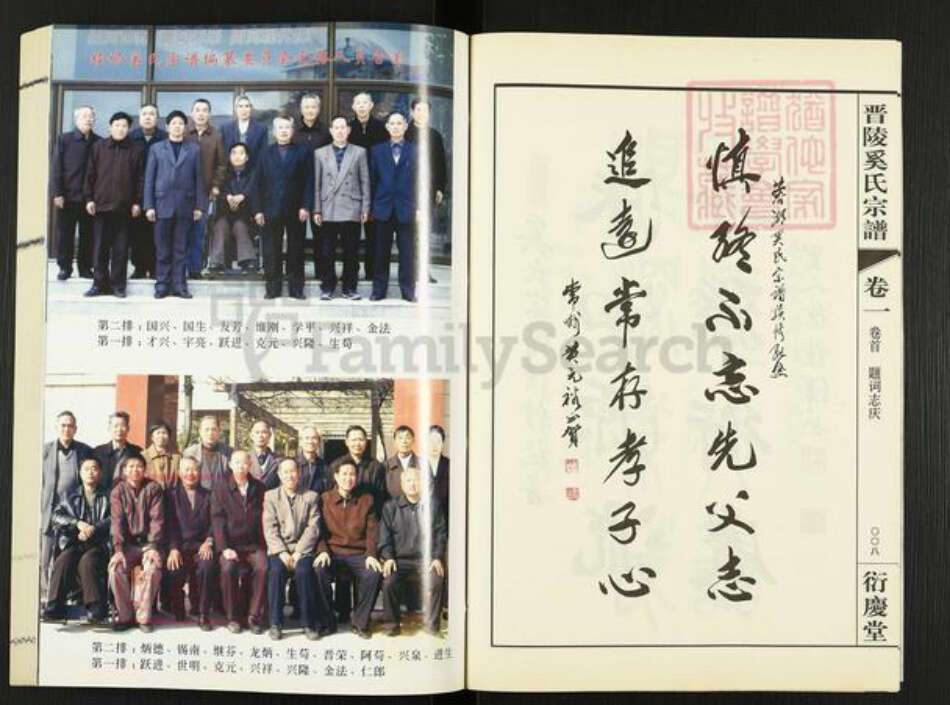 第二排：国兴、国生、友芳、维刚、学平、兴祥、金法
第一排：才兴、宇亮、跃进、克元、兴隆、生荀
第二排：炳德、锡南、继芬、龙炳、生荀、晋荣、阿荀、兴泉、进生
第一排：跃进、世明、克元、兴祥、兴隆、金法、仁郎
FamilySearch
晋陵奚氏宗譜
卷一
卷首 题词志庆
〇〇八
衍慶堂
慎終不忘先父志
追遠常存孝子心